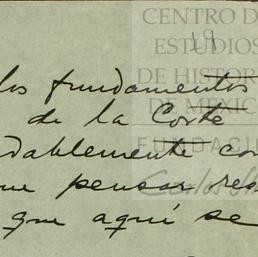 CENTRO D
ESTUDIOS
19
DE HISTOR
DE MÉXIC
FUNDACI
los fundamentos
de la Corte
dablemente con
pensar
que aquí se